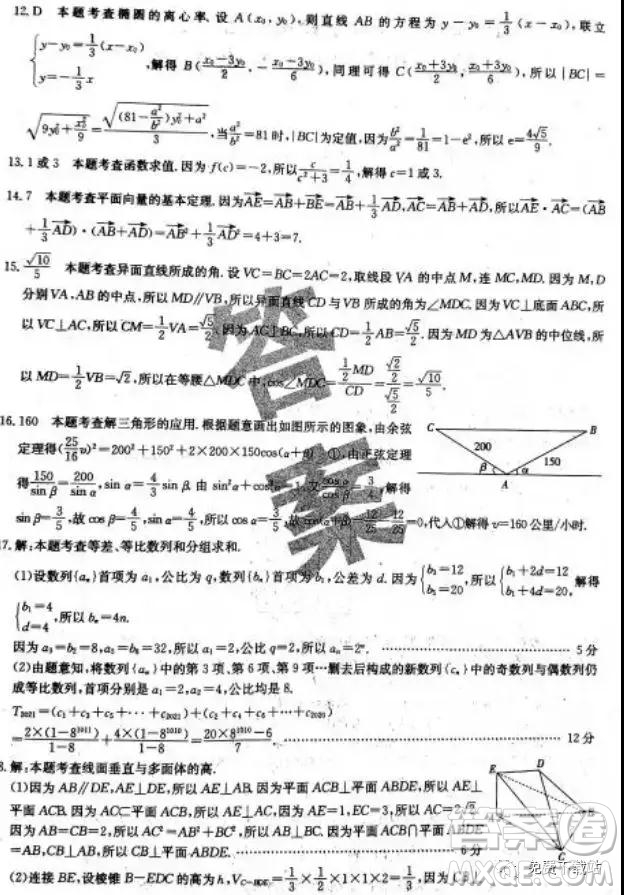 12. D 本题考查椭圆的离心率. 设 A(x₀, y₀), 则直线 AB 的方程为 y−y₀=1/3(x−x₀), 联立
{y−y₀=1/3(x−x₀)
y=−1/3x
,解得 B((x₀−3y₀)/2, −(x₀−3y₀)/6), 同理可得 C((x₀+3y₀)/2, (x₀+3y₀)/6), 所以|BC|=
√(9y₀²+x₀²/9)=√((81−a²/b²)y₀²+a²)/3, 当a²/b²=81时, |BC|为定值, 因为b²/a²=1/81=1−e², 所以 e=4√5/9.
13. 1或3 本题考查函数求值. 因为 f(c)=−2, 所以c/(c²+3)=1/4, 解得 c=1 或 3.
14. 7 本题考查平面向量的基本定理. 因为AE=AB+BE=AB+1/3AD, AC=AB+AD, 所以AE·AC=(AB
+1/3AD)·(AB+AD)=AB²+1/3AD²=4+3=7.
15. √10/5 本题考查异面直线所成的角. 设 VC=BC=2AC=2, 取线段 VA 的中点 M, 连 MC, MD. 因为 M, D
分别VA, AB 的中点, 所以 MD∥VB, 所以异面直线 CD 与 VB 所成的角为∠MDC. 因为 VC⊥底面 ABC, 所
以 VC⊥AC, 所以 CM=1/2VA=√5/2. 因为 AC⊥BC, 所以 CD=1/2AB=√5/2. 因为 MD 为△AVB 的中位线, 所
以 MD=1/2VB=√2, 所以在等腰△MDC 中, cos∠MDC=(1/2MD)/CD=(√2/2)/(√5/2)=√10/5.
16. 160 本题考查解三角形的应用. 根据题意画出如图所示的图象, 由余弦
定理得(25/16v)²=200²+150²+2×200×150cos(α+β) ①, 由正弦定理
得150/sinβ=200/sinα, sinα=4/3sinβ. 由 sin²α+cos²α=1, 又cosα/cosβ=3/4, 解得
sinβ=3/5, 故 cosβ=4/5, sinα=4/5, 所以 cosα=3/5, 故 cos(α+β)=12/25−12/25=0, 代入①解得 v=160 公里/小时.
C
B
200
150
β
α
A
7. 解: 本题考查等差、等比数列和分组求和.
(1)设数列{aₙ}首项为 a₁, 公比为 q, 数列{bₙ}首项为 b₁, 公差为 d. 因为{b₃=12 b₅=20, 所以{b₁+2d=12 b₁+4d=20, 解得
{b₁=4
d=4
, 所以 bₙ=4n.
因为 a₃=b₂=8, a₅=b₈=32, 所以 a₁=2, 公比 q=2, 所以 aₙ=2ⁿ. …………………… 5分
(2)由题意知, 将数列{aₙ}中的第 3 项、第 6 项、第 9 项…删去后构成的新数列{cₙ}中的奇数列与偶数列仍
成等比数列, 首项分别是 a₁=2, a₂=4, 公比均是 8.
T₂₀₂₁=(c₁+c₃+c₅+…+c₂₀₂₁)+(c₂+c₄+c₆+…+c₂₀₂₀)
=2×(1−8¹⁰¹¹)/(1−8)+4×(1−8¹⁰¹⁰)/(1−8)=(20×8¹⁰¹⁰−6)/7. …………………… 12分
8. 解: 本题考查线面垂直与多面体的高.
(1)因为 AB∥DE, AE⊥DE, 所以 AE⊥AB. 因为平面 ACB⊥平面 ABDE, 所以 AE⊥
平面 ACB. 因为 AC⊂平面 ACB, 所以 AE⊥AC, 因为 AE=1, EC=3, 所以 AC=2√2.
因为 AB=CB=2, 所以 AC²=AB²+BC², 所以 AB⊥BC. 因为平面 ACB∩平面 ABDE
=AB, CB⊥AB, 所以 CB⊥平面 ABDE. …………………… 6分
(2)连接 BE, 设棱锥 B−EDC 的高为 h, V_C−BDE=1/3×1/2×1×1×2=1/3, 因为
E
D
B
C
答案